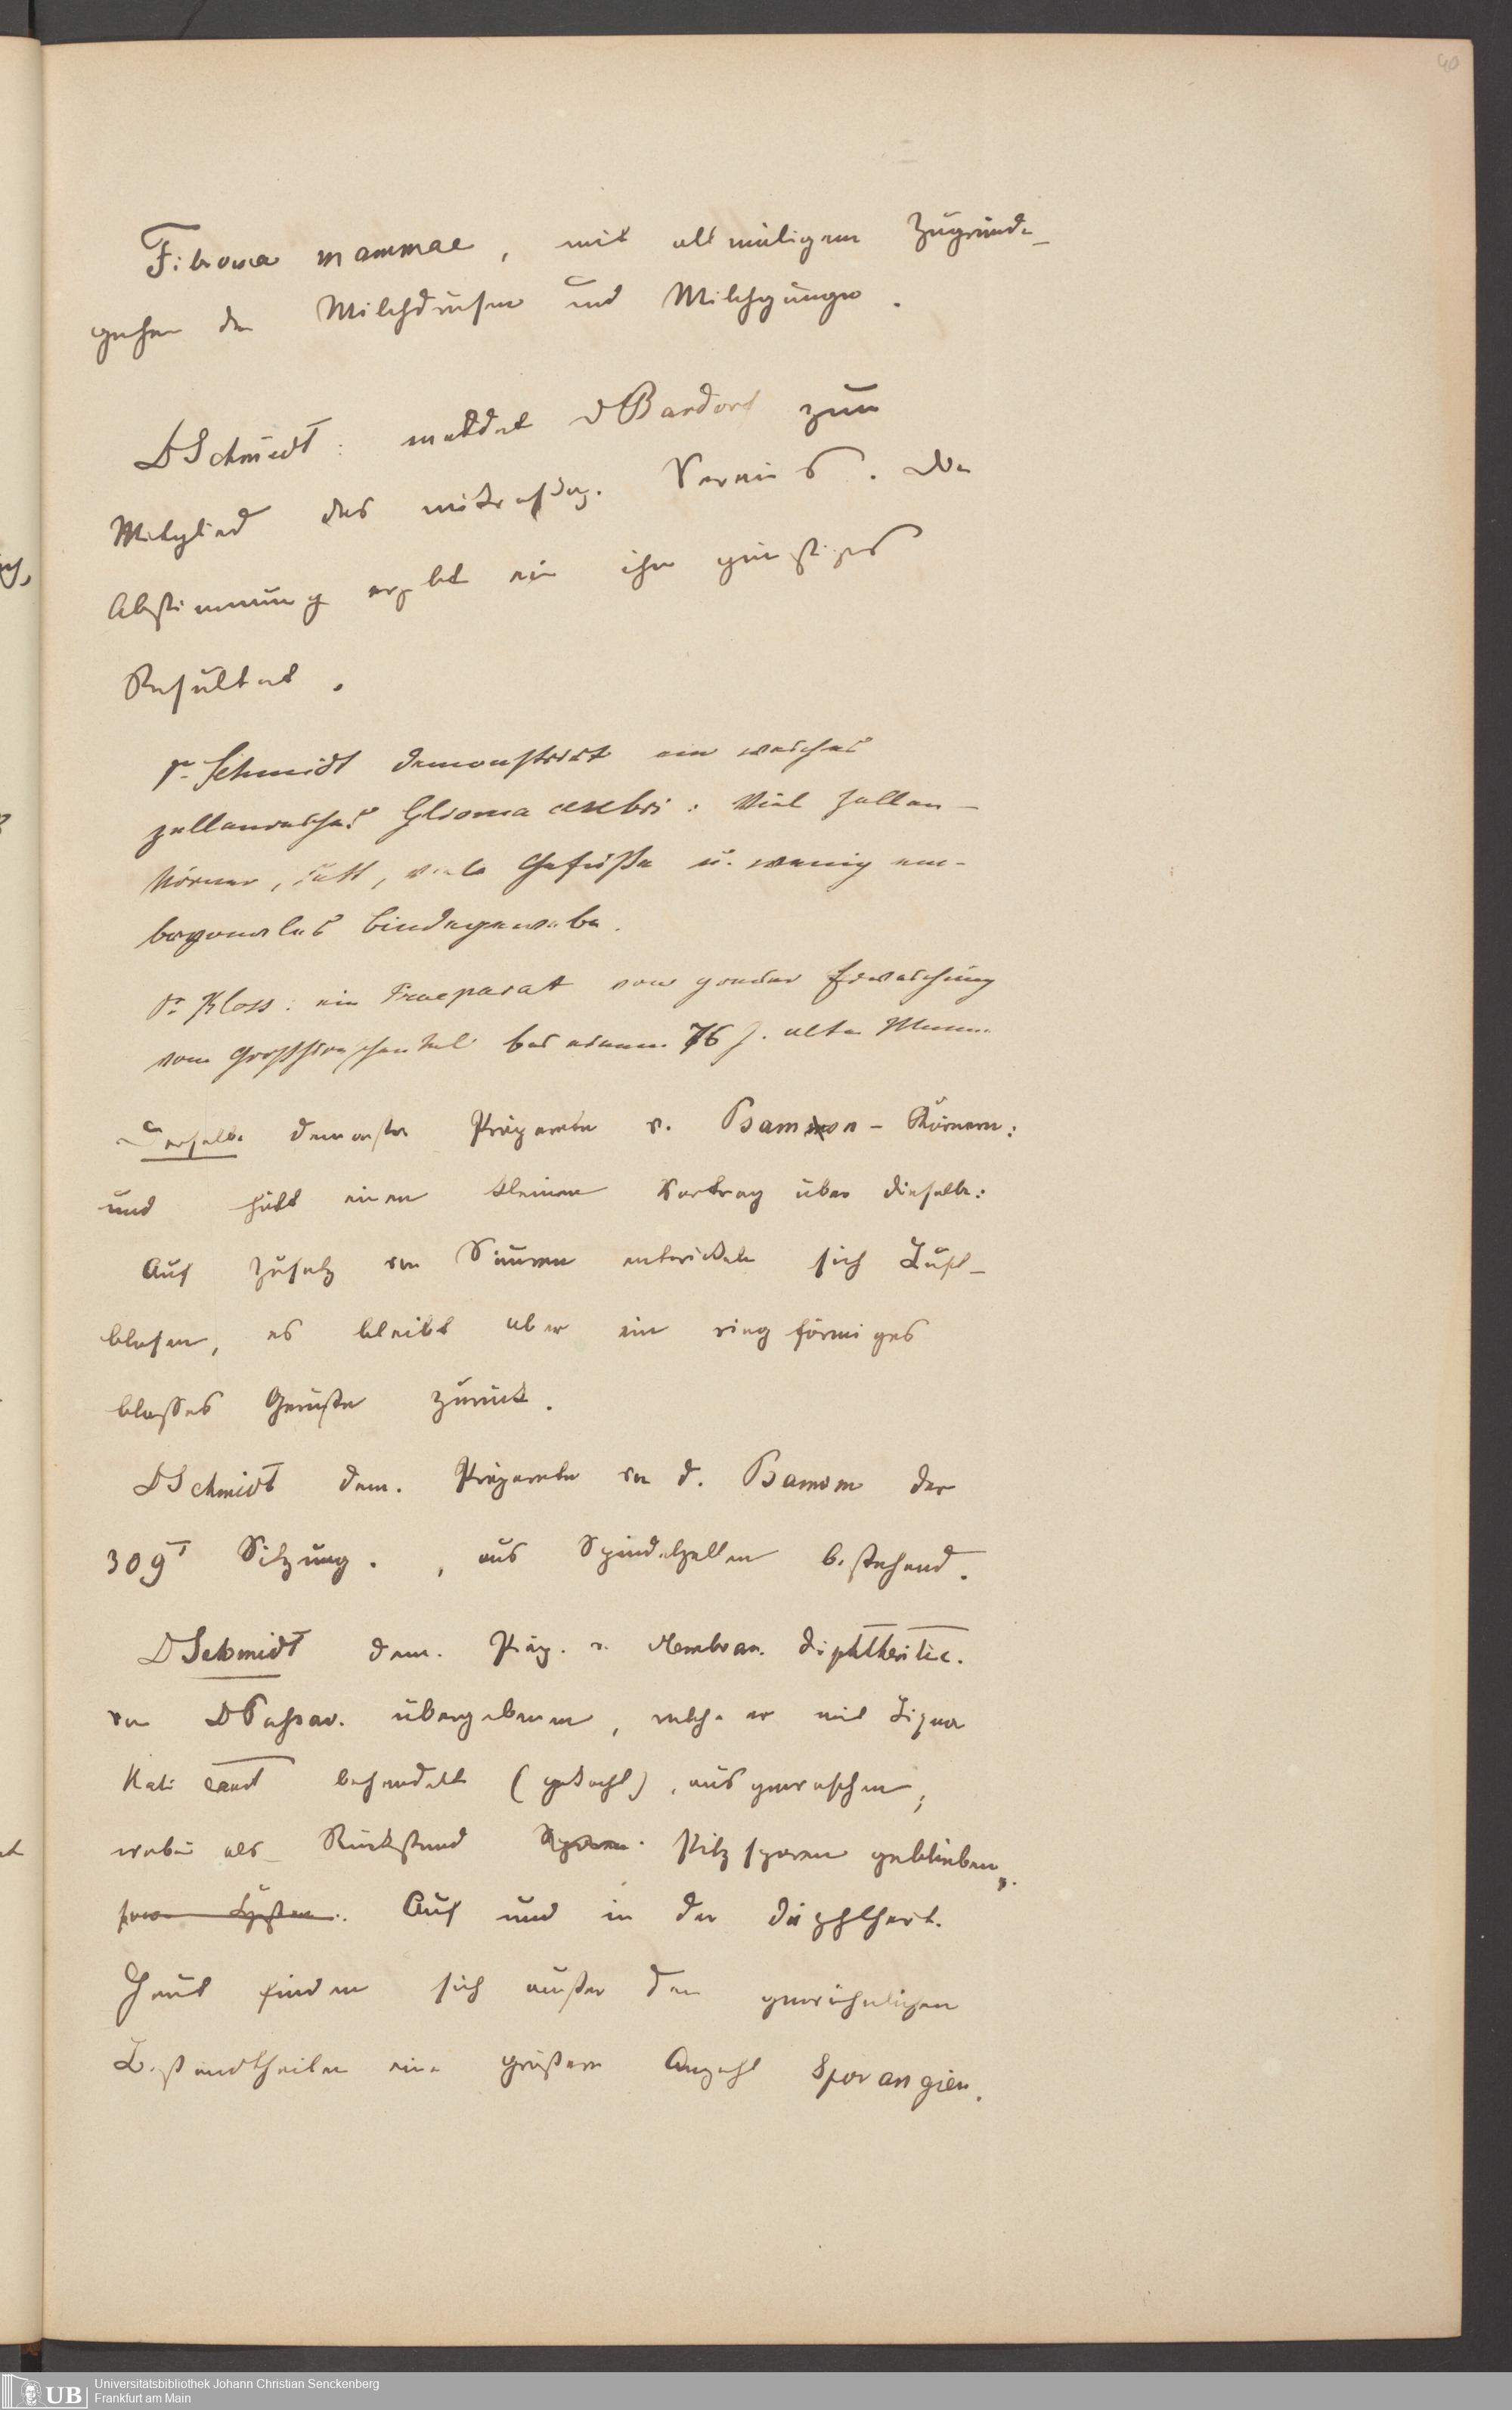 40
Fibroma mammae, mit allmäligem Zugrunde-
gehen der Milchdrüsen und Milchgänge.
D Schmidt: meldet D Bardorf zum
Mitglied des mikroskop. Vereins. Die
Abstimmung ergibt ein ihm günstiges
Resultat.
Dr. Schmidt demonstrirt ein weiches
zellenreiches Glioma cerebri: Viel Zellen-
körner, Fett, viele Gefäße u. wenig em-
bryonales Bindegewebe.
Dr. Kloss: ein Praeparat von grauer Erweichung
vom Großhirnschenkel bei einem 76 J. alten Mann.
Derselbe demonstr Präparate v. Psammom - Körnern:
und hält einen kleinen Vortrag über dieselbe:
Auf Zusatz von Säuren entwickeln sich Luft-
blasen, es bleibt aber ein ringförmiges
blasses Gerüste zurück.
D Schmidt dem. Präparate von d. Psamom der
309T Sitzung. , aus Spindelzellen bestehend.
D Schmidt dem. Präp. v. Membran. diphtheritic.
von D Passav. übergebenen, welche er mit Liquor
Kali caust behandelt (gekocht), ausgewaschen,
wobei als Rückstand Sporen. Pilzsporen geblieben.
Auf und in der diphther.
Haut finden sich außer den gewöhnlichen
Bestandtheilen eine größere Anzahl Sporangien.
UB
Universitätsbibliothek Johann Christian Senckenberg
Frankfurt am Main